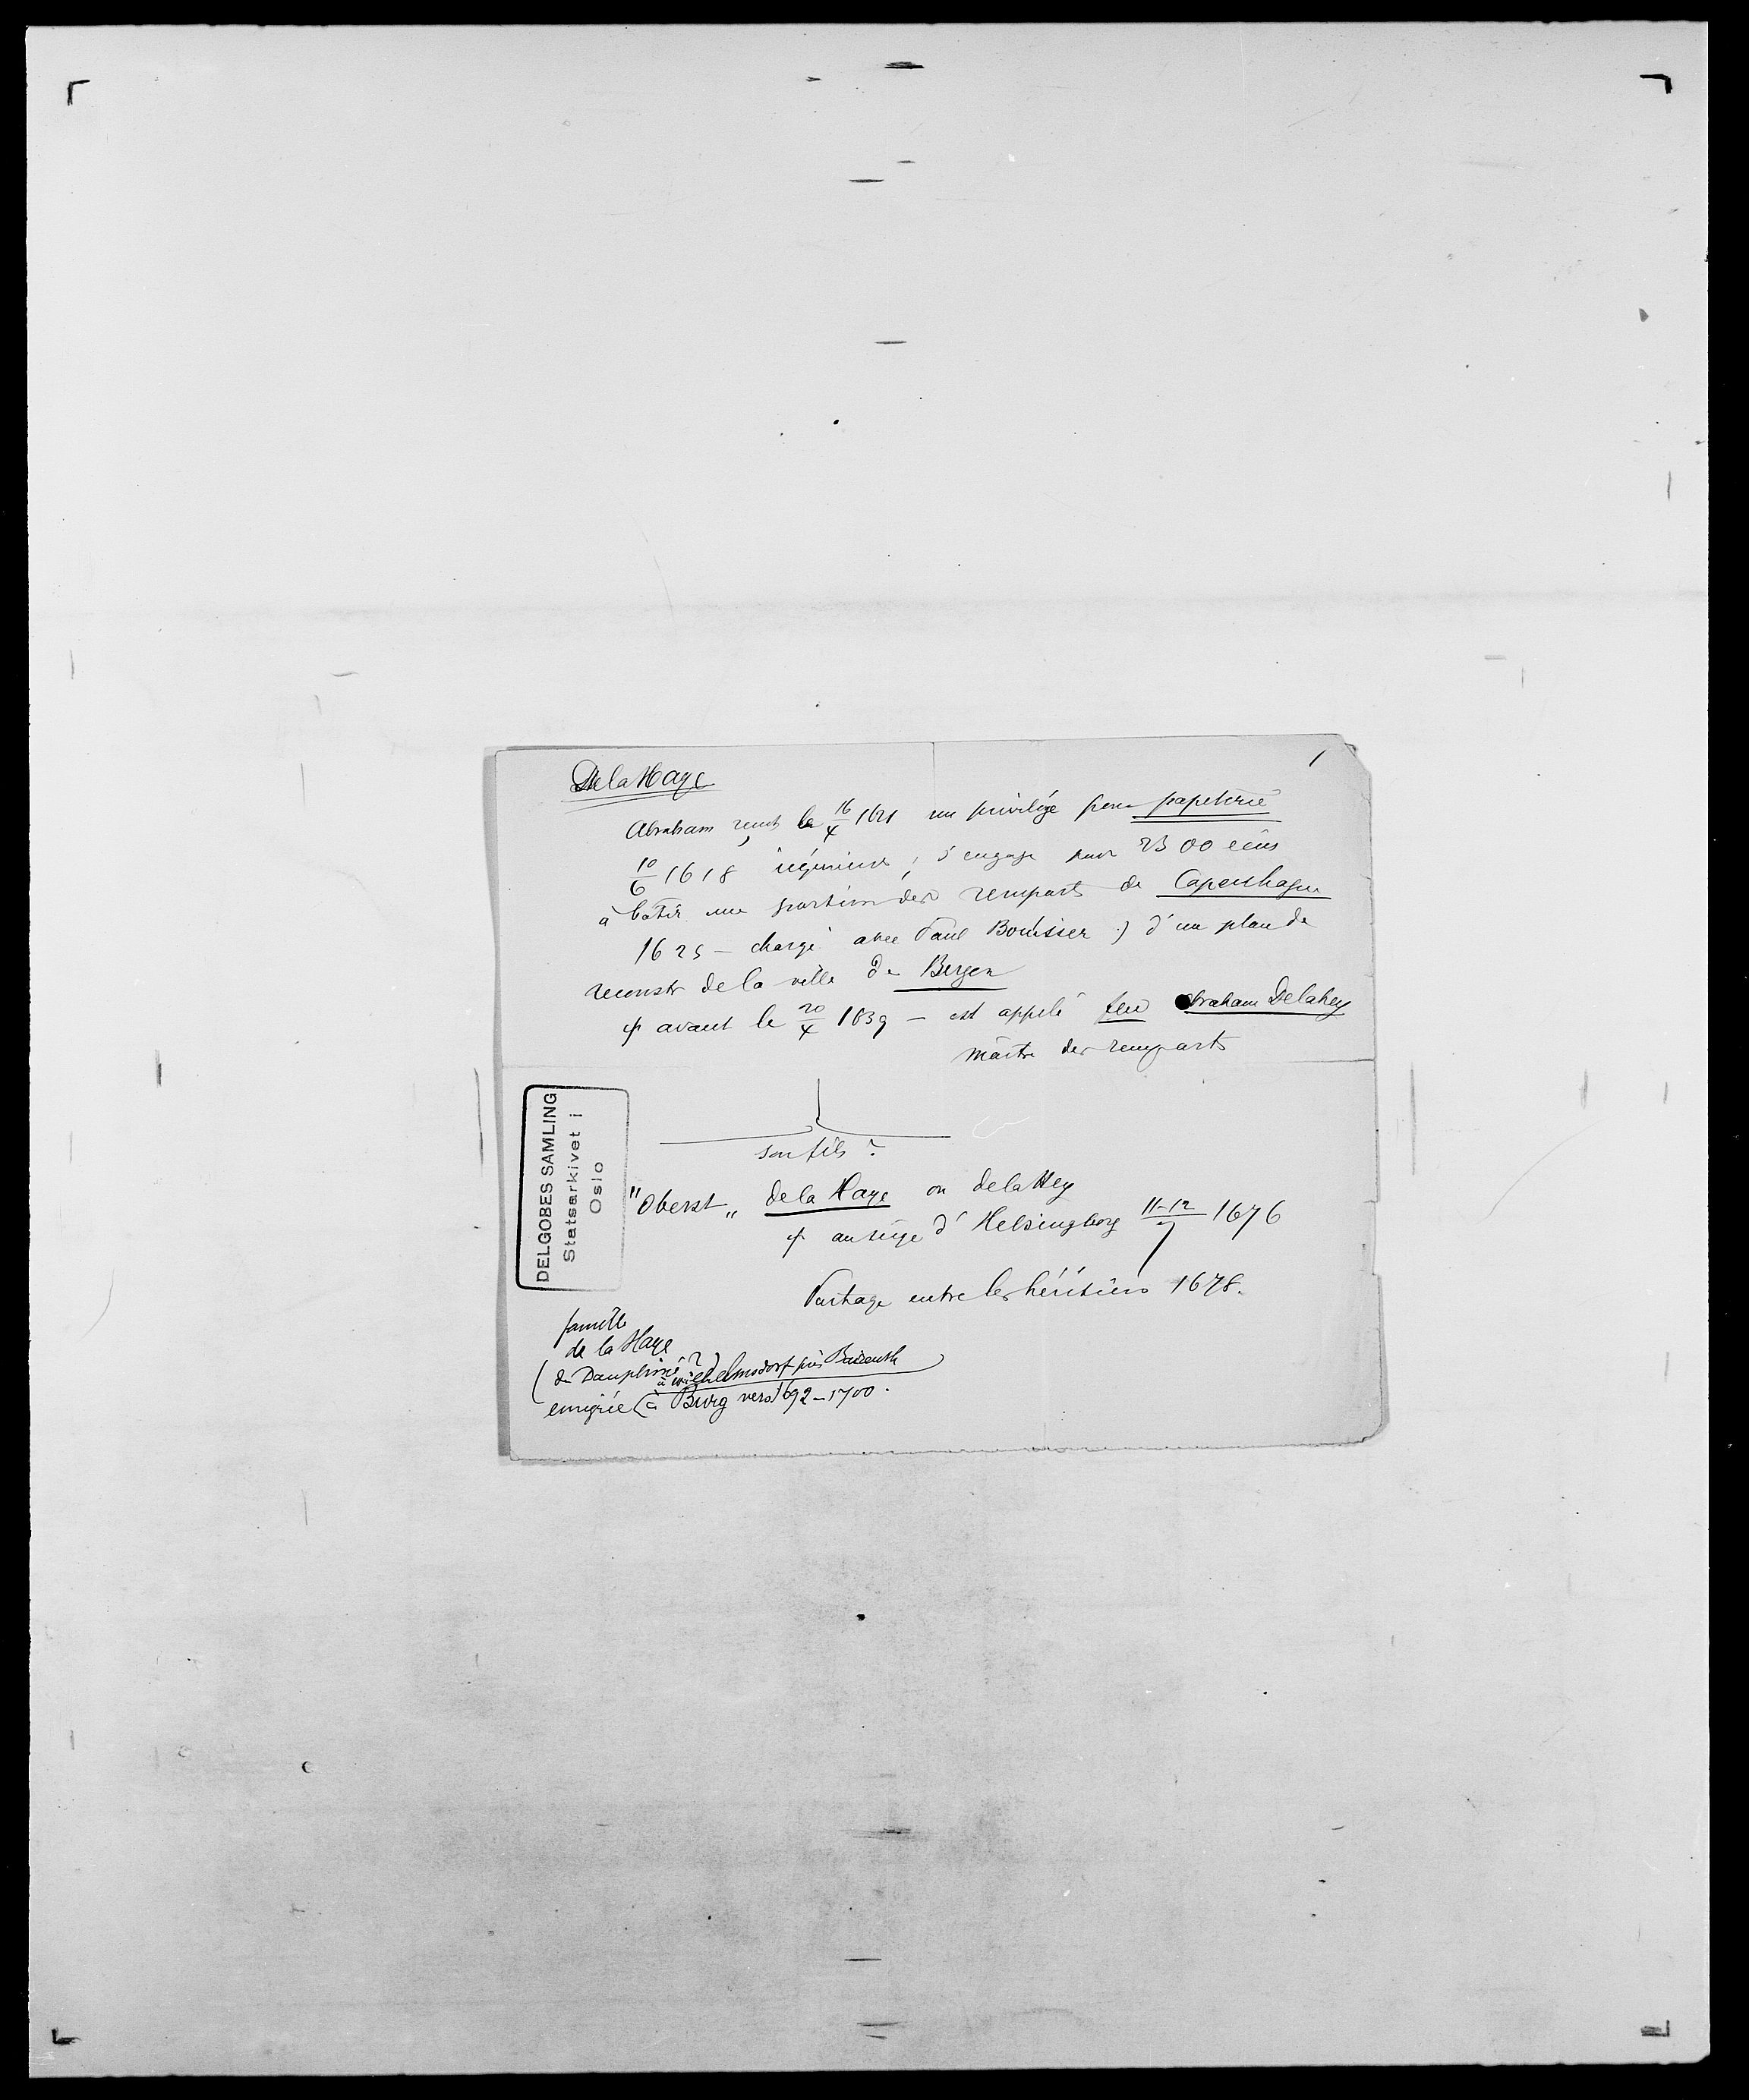 1
De la Haye
Abraham reçut le 16/4 1621 un privilége pour papeterie
10/6 1618 ingénieur, s'engage pour 2300 écus
à batir une portion des remparts de Copenhague
1625 - chargé avec Paul Boursier ) d'un plan de
reconstr de la ville de Bergen
† avant le 20/4 1639 - est appelé feu Abraham Delahey
maître des remparts
son fils ?
"Oberst" de la Haye ou de la Hey
† au siège d'Helsingborg 11-12/7 1676
Partage entre les héritiers 1678.
DELGOBES SAMLING
Statsarkivet i
Oslo
famille
de la Haye
(du Dauphiné ?)
à Wilhelmsdorf près Baireuth
emigrée (à Burg vers 1692-1700.